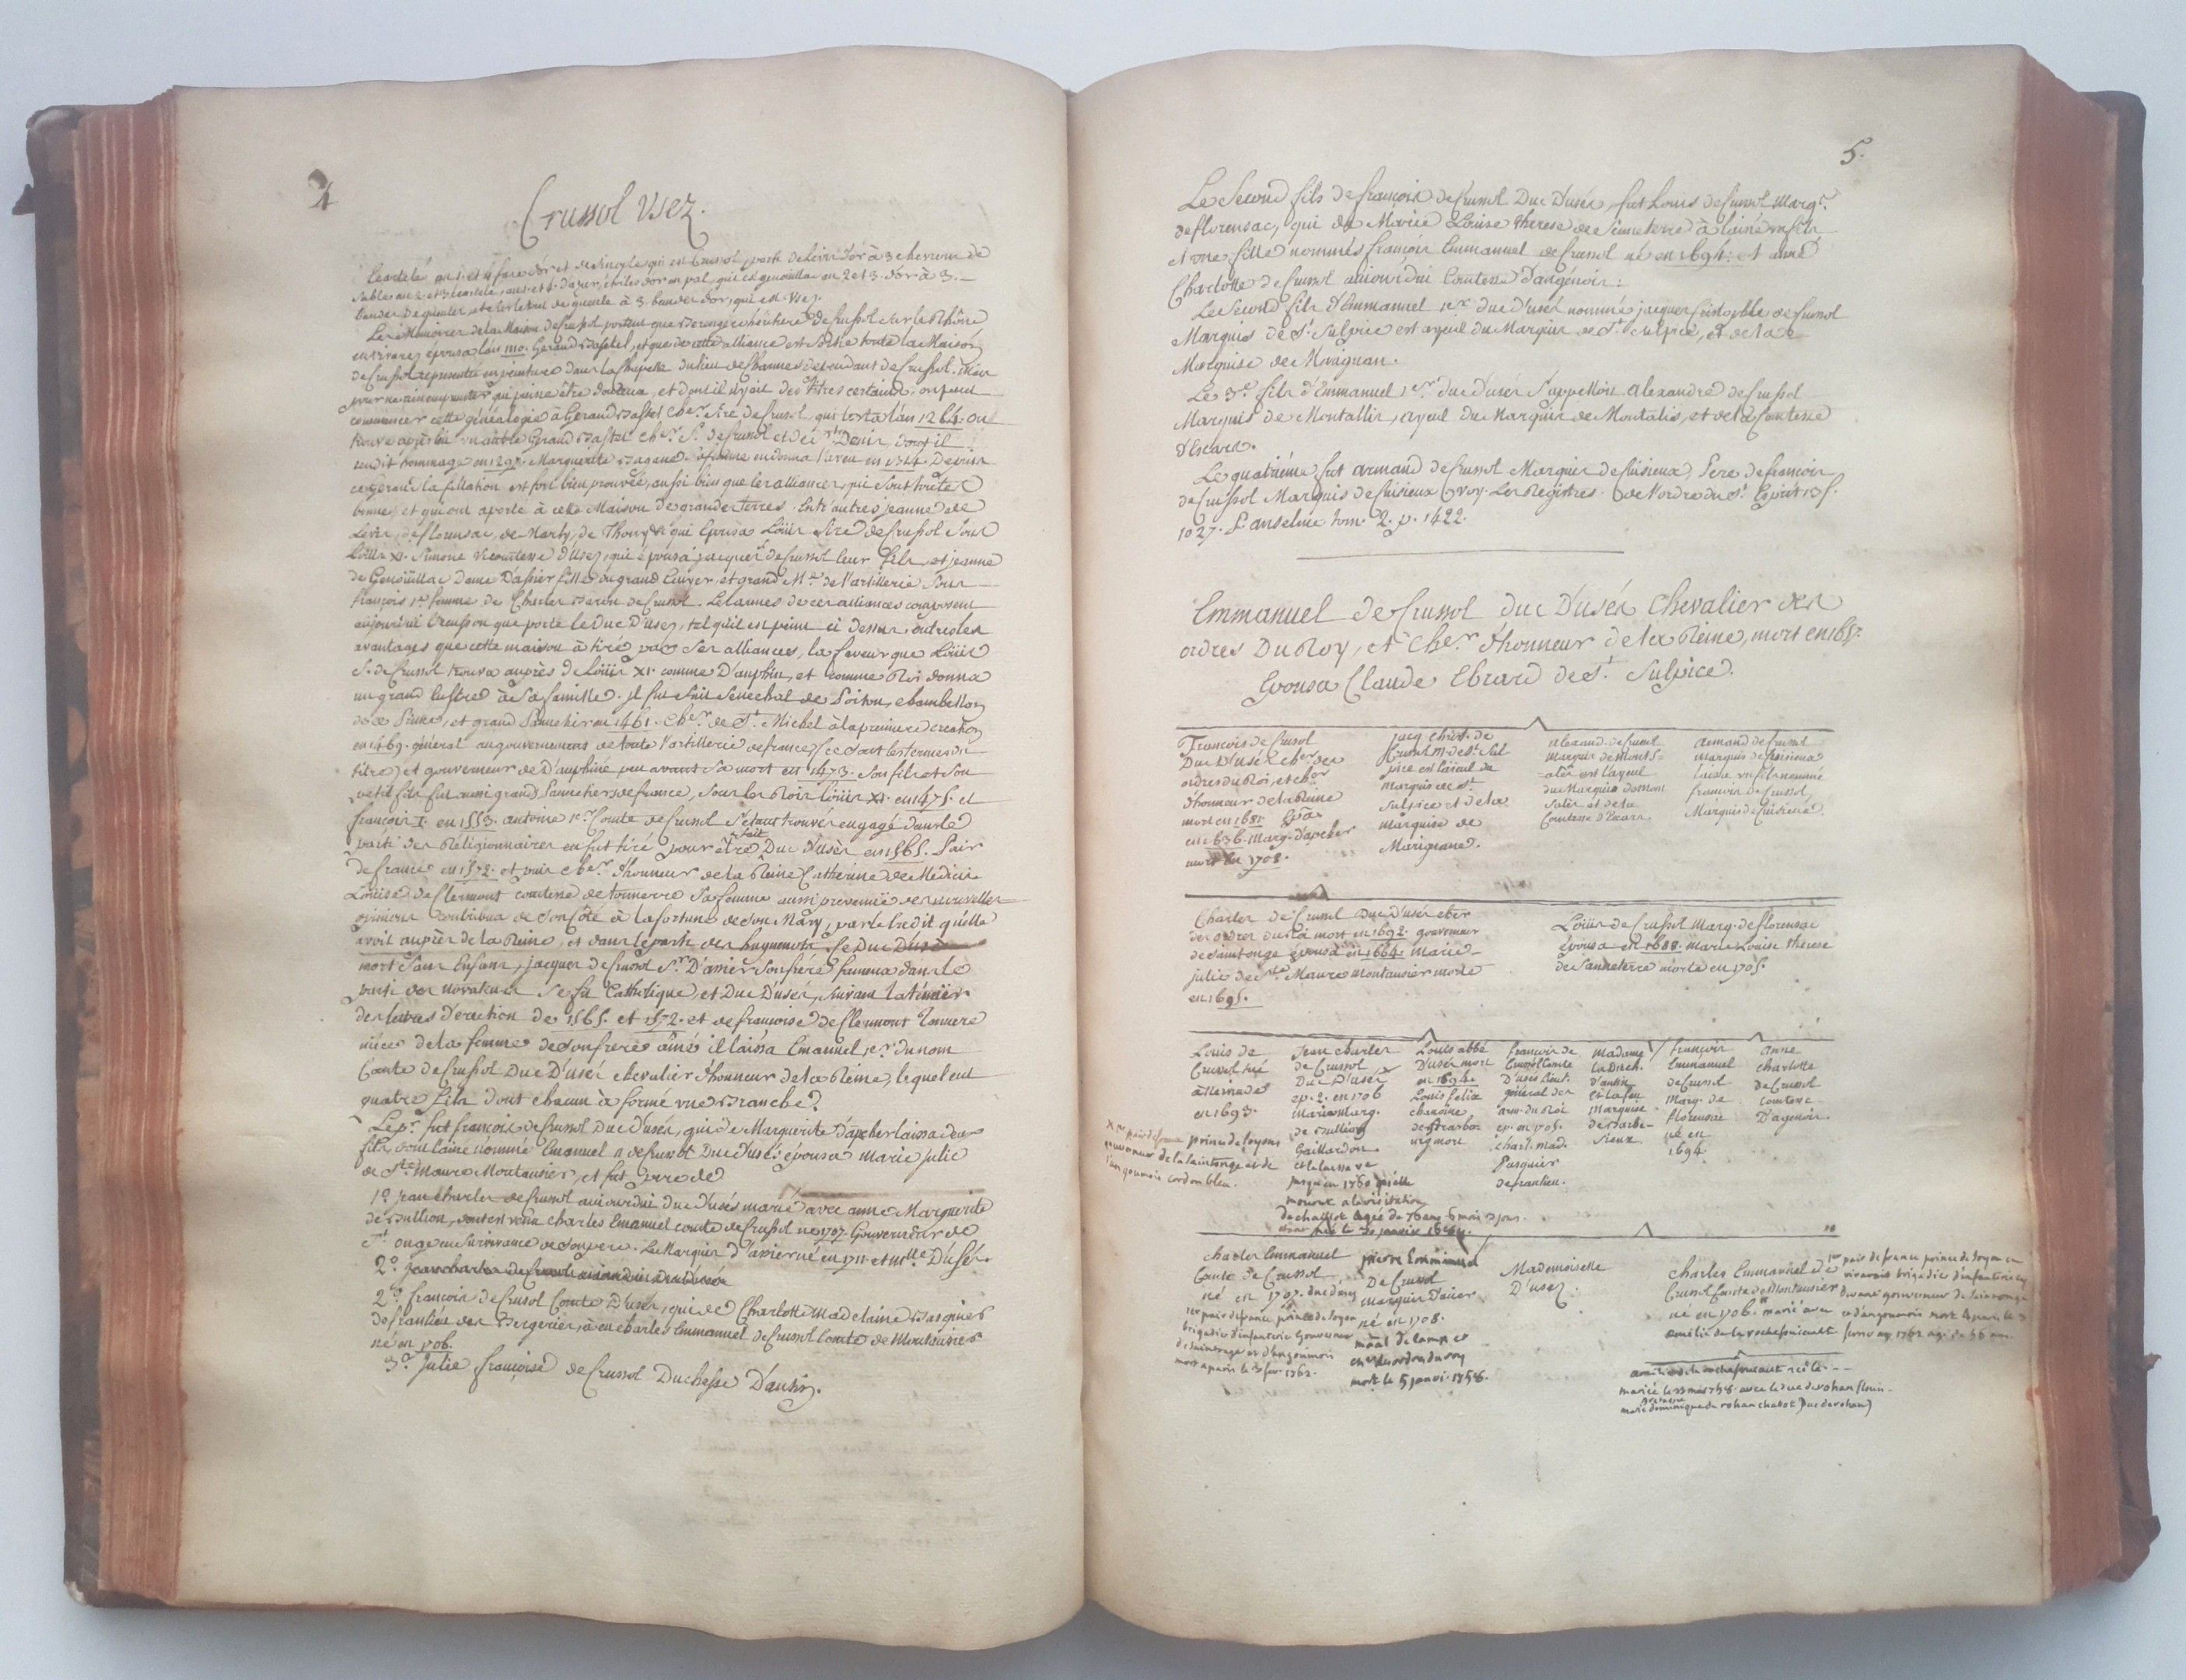 4
Crussol Usez.
Ecartelé au 1. et 4 fascé d'or et de sinople qui est Crussol, parti de Levis d'or à 3 chevrons de
sable, au 2 et 3 écartelé, au 1. et 4. d'azur, étoiles d'or en pal, qui est genouillac au 2 et 3. d'or à 3.
bandes de gueules, et sur le tout de gueule à 3 bandes d'or, qui est Usez.
Les Mémoires de la Maison de Crussol portent que heritiere de Crussol sur le Rhône
en vivarez épousa l'an 1110. Geraud Bastet, et que de cette alliance est sortie toute la Maison
de Crussol representée en peinture dans la Chapelle du lieu de Charmes dépendant de Crussol. Mais
pour ne rien emprunter qui puisse être douteux, et dont il n'y ait des titres certains, on peut
commencer cette généalogie à Geraud Bastet Cher. sire de Crussol, qui testa l'an 1264. On
trouve après lui un autre Geraud Bastet Cher. Sr. de Crussol et de Denis, dont il
rendit hommage en 129 . Marguerite sa femme en donna l'aveu en 13 4. Depuis
ce Geraud la filiation est fort bien prouvée, aussi bien que les alliances, qui sont toutes
bonnes, et qui ont aporté à cette Maison de grandes Terres. Entr'autres jeanne de
Levis, de florensac, de Marly, de Thoury &c qui épousa Loüis Sire de Crussol sous
Loüis XI. Simone vicomtesse d'Usez, qui épousa jacques de Crussol leur fils, et jeanne
de Genoüillac Dame D'assier fille du grand Ecuyer, et grand Me. de l'artillerie sous
françois 1er femme de Charles Baron de Crussol. Les armes de ces alliances composent
aujourd'hui l'ecusson que porte le Duc D'Usez, tel qu'il est peint ci dessus, outre les
avantages que cette maison à tiré par ses alliances, la faveur que Loüis
S. de Crussol trouva auprès de Loüis XI. comme D'auphin, et comme Roi donna
un grand lustre à sa famille. Il fut fait Senechal de Poitou, chambellan
de ce Prince, et grand Pannetier en 1461. Cher. de St. Michel à la premiere creation
en 1469. général au gouvernement de toute l'artillerie de france (ce sont les termes du
titre) et gouverneur de D'auphiné peu avant sa mort en 1473. Son fils et son
petit fils fut aussi grand Pannetiers de france, sous les Rois Loüis XI. en 1475. et
françois I. en 1553. antoine 1er. Comte de Crussol s'étant trouvé engagé dans le
parti des Réligionnaires en fut tiré pour être fait Duc d'Usés en 1565. Pair
de france en 1572. et puis Cher. d'honneur de la Reine Catherine de Medicis
Loüise de Clermont comtesse de tonnerre sa femme aussi prevenuë des nouvelles
opinions contribua de son côté à la fortune de son Mary, par le credit qu'elle
avoit auprès de la Reine, et dans le parti des huguenots. Le Duc D'Usés
mort sans Enfans, jacques de Crussol Sr. D'assier son frére fameux dans le
parti des Novateurs se fit Catholique, et Duc D'Usés, suivant la teneur
des lettres d'érection de 1565. et 1572. et de françoise de Clermont Tonnere
niéce de la femme de son frere ainé il laissa Emanuel 1er. du nom
Comte de Crussol Duc D'Usés chevalier d'honneur de la Reine, lequel eut
quatre fils dont chacun à formé une Branche.
Le pr. fut françois de Crussol Duc d'Usés, qui de Marguerite D'apcher laissa deux
fils, dont l'ainé nommé Emanuel de Crussol Duc d'Usés épousa Marie Julie
de Ste Maure Montausier, et fut pere de
1º. jean charles de Crussol aujourdui duc d'Usés marié avec anne Marguerite
de Bullion, dont est venu charles Emanuel comte de Crussol né 1707. Gouverneur de
St. onge en survivance de son pere. Le Marquis D'assier né en 1711. et Melle. D'Usés.
2º. jean charles de Crussol aujourdui Duc d'Usés
2º. françois de Crussol Comte D'Usés, qui de Charlotte Madelaine Pasquier
de franlieu des Bergeries, à eu charles Emmanuel de Crussol Comte de Montausier
né en 1706.
3º. Julie françoise de Crussol Duchesse D'antin.
5.
Le second fils de françois de Crussol Duc D'Usés, fut Loüis de Crussol Marqr.
de florensac, qui de Marie Loüise therese de Senneterre à laissé un fils
et une fille nommés françois Emmanuel de Crussol né en 1694. et anne
Charlotte de Crussol aujourdui Comtesse D'aigénois.
Le Second fils d'Emmanuel 1er. duc d'Usés nommé jacques Cristophle de Crussol
Marquis de St. Sulpice est ayeul du Marquis de St. Sulpice, et de la
Marquise de Marignan.
Le 3e. fils d'Emmanuel 1er. duc d'Usés s'appelloit Alexandre de Crussol
Marquis de Montallis, ayeul du Marquis de Montalis, et de la Comtesse
d'Escars.
Le quatriéme fut armand de Crussol Marquis de Cuisieux, Pere de françois
de Crussol Marquis de Cuisieux, voy. Les Registres de l'ordre du St. Esprit
1027. P. anselme tom. 2. p. 1422.
Emmanuel de Crussol duc D'Usés Chevalier des
ordres Du Roy, et Cher. d'honneur de la Reine, mort en 1657.
Epousa Claude Ebrard de St. Sulpice.
François de Crussol
Duc D'Usés cher des
ordres du Roi, et cher
d'honneur de la Reine
mort en 1681. Epa.
en 1636. Marg. D'apcher
morte en 1708.
jacq. christ. de
Crussol m. de St. Sul
pice est l'aieul du
marquis de St.
Sulpice et de la
marquise de
Marignane.
Alexand. de Crussol
Marquis de Mont S
alés est l'ayeul
du Marquis de Mont
Salés et de la
Comtesse d'Escars.
Armand de Crussol
Marquis de Cuisieux
laissa un fils nommé
francois de Crussol,
Marquis de Cuisieux.
Charles de Crussol Duc D'Usés cher
des ordres du Roi mort en 1692. gouverneur
de Saintonge épousa en 1664. Marie
julie de Ste Maure Montausier morte
en 1695.
Loüis de Crussol Marq. de florensac
épousa en 1688. marie Louise therese
de Senneterre morte en 1705.
Louis de
Crussol tué
à Nerwinde
en 1693.
Jean charles
de Crussol
Duc D'Usés
ep. 2. en 1706
Marie Marg.
de Bullion
Gaillardon
et l'a laissa ve
jusqu'en 1760 qu'elle
mourut a la visitation
de chaillot agée de 76 ans 6 mois jours.
étant née le 30 janvier 1684.
Louis abbé
D'Usés mort
en 1694.
Louis felix
chanoine
de Strasbo
urg mort
françois de
Crussol Comte
D'Usés lieut.
général des
arm. du Roi
ep. en 1705.
charl. mad.
Pasquier
de franlieu.
Madame
la Duch.
d'antin
et la feu
Marquise
de Barbe-
sieux
françois
Emmanuel
de Crussol
Marq. de
florensac
né en
1694
Anne
charlotte
de Crussol
Comtesse
D'agenois
x 1er pair de france prince de soyons
gouverneur de la saintonge et de
l'angoumois cordon bleu.
charles Emmanuel
Comte de Crussol
né en 1707. duc d'uzes
1er pair de france prince de soyon
brigadier d'infanterie Gouverneur
de saintonge et d'angoumois
mort a paris le 3 fev. 1762.
pierre Emmanuel
De Crussol
marquis D'acier
né en 1708.
maal. de camp et
cher. des ordres du roy
mort le 5 janvi. 1758.
Mademoiselle
D'Usez.
charles Emmanuel de
Crussol comte de Montausier
né en 1706. marié avec
émilie de la rochefoucault
1er pair de france prince de soyon en
vivarais brigadier d'infanterie
gouverneur de saintonge
et d'angoumois mort a paris le 3
fevrier 1762 agé de 56 ans.
amélie de la rochefoucault née le - -
mariée le 23 mai 1758. avec le duc de rohan
marie dominique de rohan chabot (Duc de rohan)